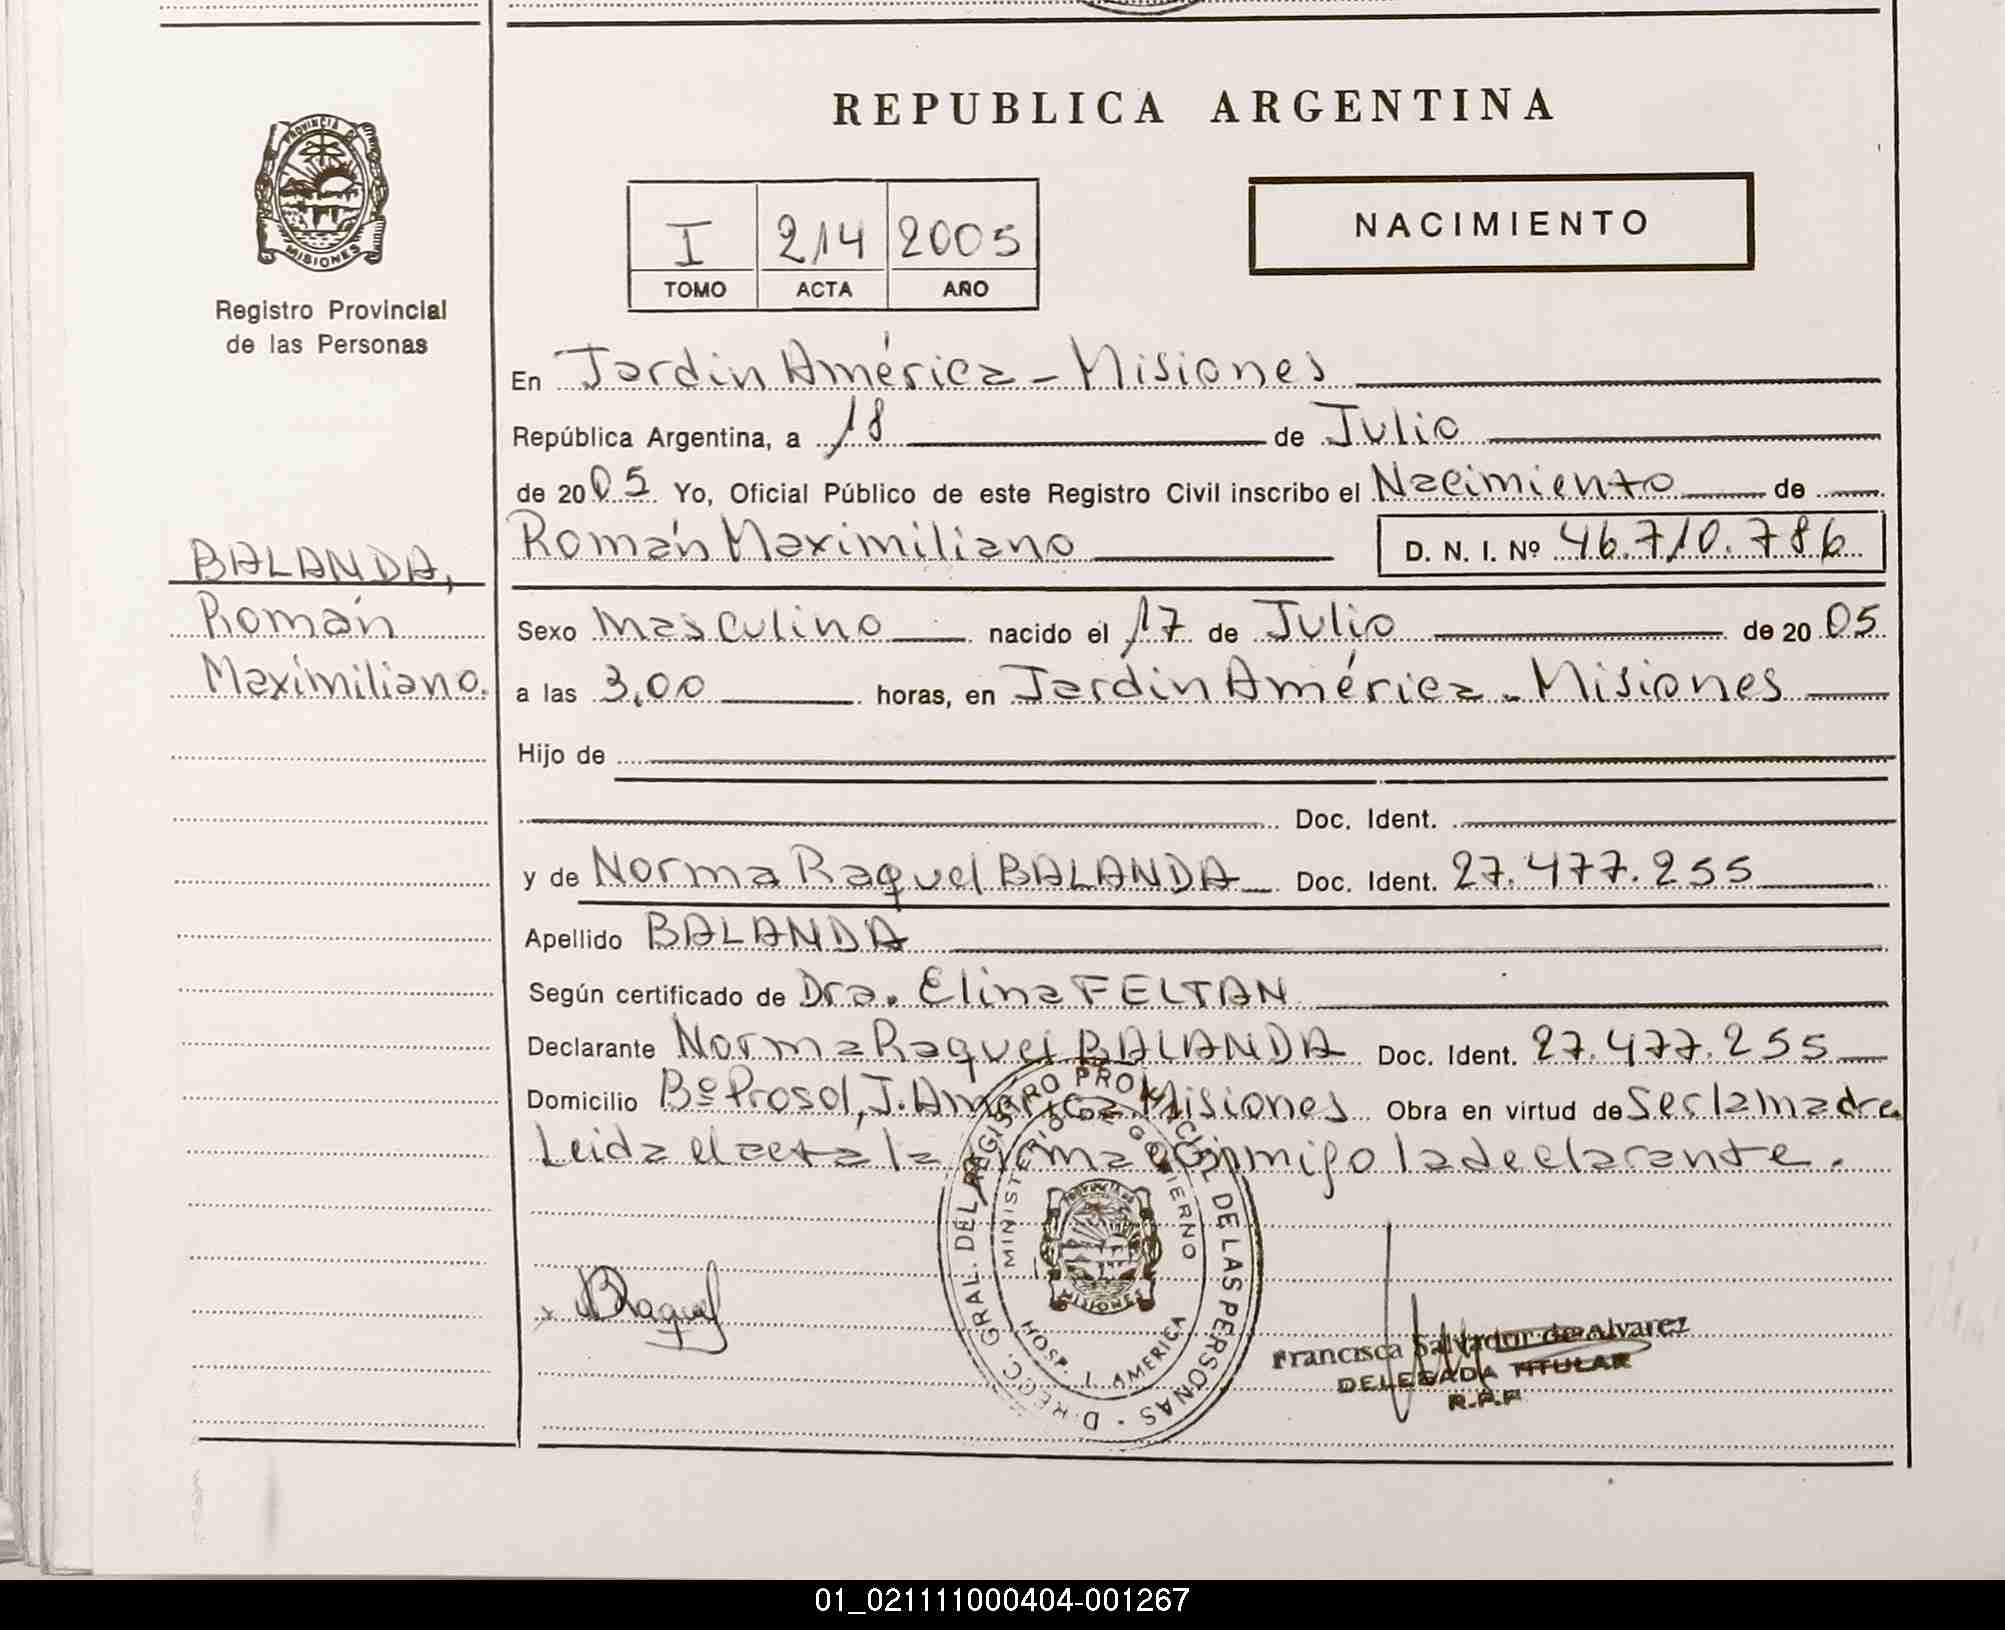 REPUBLICA ARGENTINA
PROVINCIA DE
MISIONES
Registro Provincial
de las Personas
I 214 2005
TOMO ACTA AÑO
NACIMIENTO
En Jardin América - Misiones
República Argentina, a 18 de Julio
de 2005 Yo, Oficial Público de este Registro Civil inscribo el Nacimiento de
Román Maximiliano D. N. I. Nº 46.710.786
BALANDA,
Román
Maximiliano.
Sexo Masculino nacido el 17 de Julio de 2005
a las 3,00 horas, en Jardin América - Misiones
Hijo de
Doc. Ident.
y de Norma Raquel BALANDA Doc. Ident. 27.477.255
Apellido BALANDA
Según certificado de Dra. Elina FELTAN
Declarante Norma Raquel BALANDA Doc. Ident. 27.477.255
Domicilio Bº Prosol, J. América Misiones Obra en virtud de Ser la madre
Leida el acta la firma conmigo la declarante.
DIRECC. GRAL. DEL REGISTRO PROVINCIAL DE LAS PERSONAS
MINISTERIO DE GOBIERNO
MISIONES
HOSP. J. AMERICA
x BRaquel
Francisca Salvador de Alvarez
DELEGADA TITULAR
R.P.P.
01_021111000404-001267